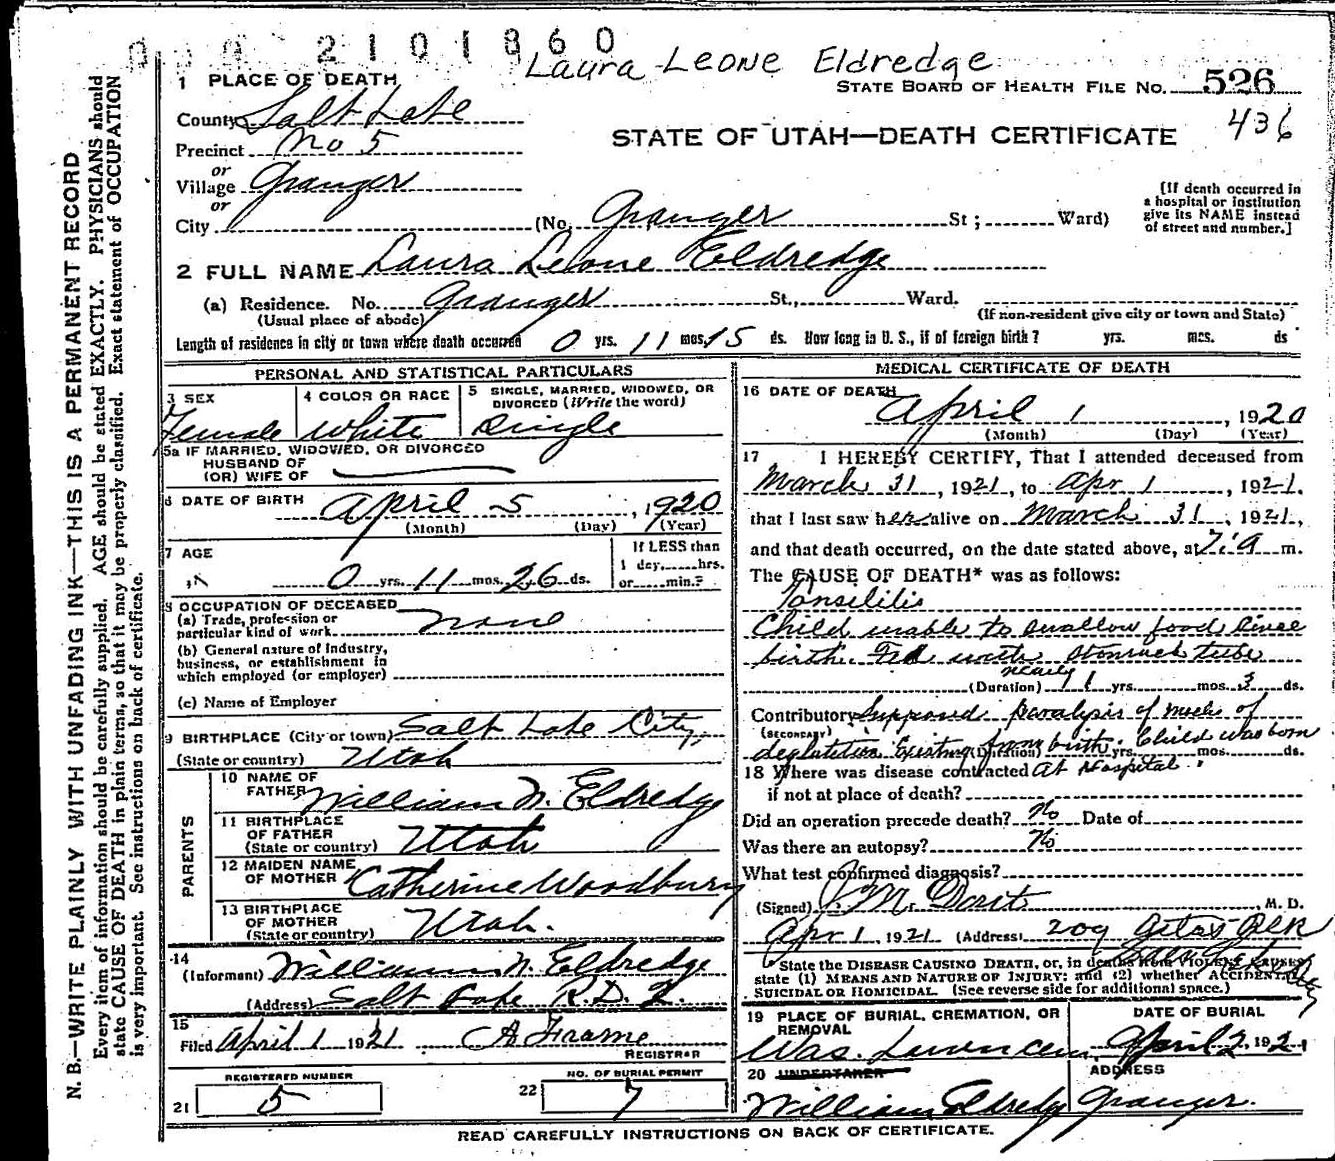 2101860
Laura Leone Eldredge
1 PLACE OF DEATH
STATE BOARD OF HEALTH FILE NO. 526
436
County Salt Lake
STATE OF UTAH—DEATH CERTIFICATE
Precinct No 5
or
Village Granger
or
City (No. Granger St; Ward)
[If death occurred in
a hospital or institution
give its NAME instead
of street and number.]
2 FULL NAME Laura Leone Eldredge
(a) Residence. No. Granger St., Ward.
(Usual place of abode) (If non-resident give city or town and State)
Length of residence in city or town where death occurred 0 yrs. 11 mos. 15 ds. How long in U. S., if of foreign birth? yrs. mos. ds
PERSONAL AND STATISTICAL PARTICULARS
3 SEX Female
4 COLOR OR RACE White
5 SINGLE, MARRIED, WIDOWED, OR
DIVORCED (Write the word)
Single
5a IF MARRIED, WIDOWED, OR DIVORCED
HUSBAND OF
(OR) WIFE OF
6 DATE OF BIRTH April 5, 1920
(Month) (Day) (Year)
7 AGE
0 yrs. 11 mos. 26 ds.
If LESS than
1 day, hrs.
or min.?
8 OCCUPATION OF DECEASED
(a) Trade, profession or
particular kind of work none
(b) General nature of Industry,
business, or establishment in
which employed (or employer)
(c) Name of Employer
9 BIRTHPLACE (City or town) Salt Lake City,
(State or country) Utah
PARENTS
10 NAME OF
FATHER William N. Eldredge
11 BIRTHPLACE
OF FATHER
(State or country) Utah
12 MAIDEN NAME
OF MOTHER Catherine Woodbury
13 BIRTHPLACE
OF MOTHER
(State or country) Utah.
14
(Informant) William N. Eldredge
(Address) Salt Lake R.D. 2.
15
Filed April 1 1921 A Frame
REGISTRAR
REGISTERED NUMBER
21 5
NO. OF BURIAL PERMIT
22 7
MEDICAL CERTIFICATE OF DEATH
16 DATE OF DEATH April 1, 1920
(Month) (Day) (Year)
17 I HEREBY CERTIFY, That I attended deceased from
March 31, 1921, to Apr 1, 1921.
that I last saw her alive on March 31, 1921,
and that death occurred, on the date stated above, at 7 a m.
The CAUSE OF DEATH* was as follows:
Tonsilitis
Child unable to swallow food since
birth. Fed with stomach tube
nearly
(Duration) 11 yrs. mos. 3 ds.
Contributory Supposed paralysis of muscles of
(SECONDARY)
deglutition Existing from birth. Child was born
(Duration) yrs. mos. ds.
18 Where was disease contracted at Hospital.
if not at place of death?
Did an operation precede death? No Date of
Was there an autopsy? No
What test confirmed diagnosis?
(Signed) M. D.
Apr 1, 1921 (Address) 209
*State the DISEASE CAUSING DEATH, or, in deaths from VIOLENT CAUSES
state (1) MEANS AND NATURE OF INJURY; and (2) whether ACCIDENTAL,
SUICIDAL OR HOMICIDAL. (See reverse side for additional space.)
19 PLACE OF BURIAL, CREMATION, OR
REMOVAL
DATE OF BURIAL
April 2, 1921
20 UNDERTAKER
William Eldredge
ADDRESS
Granger.
READ CAREFULLY INSTRUCTIONS ON BACK OF CERTIFICATE.
N. B.—WRITE PLAINLY WITH UNFADING INK—THIS IS A PERMANENT RECORD
Every item of information should be carefully supplied. AGE should be stated EXACTLY. PHYSICIANS should
state CAUSE OF DEATH in plain terms, so that it may be properly classified. Exact statement of OCCUPATION
is very important. See instructions on back of certificate.